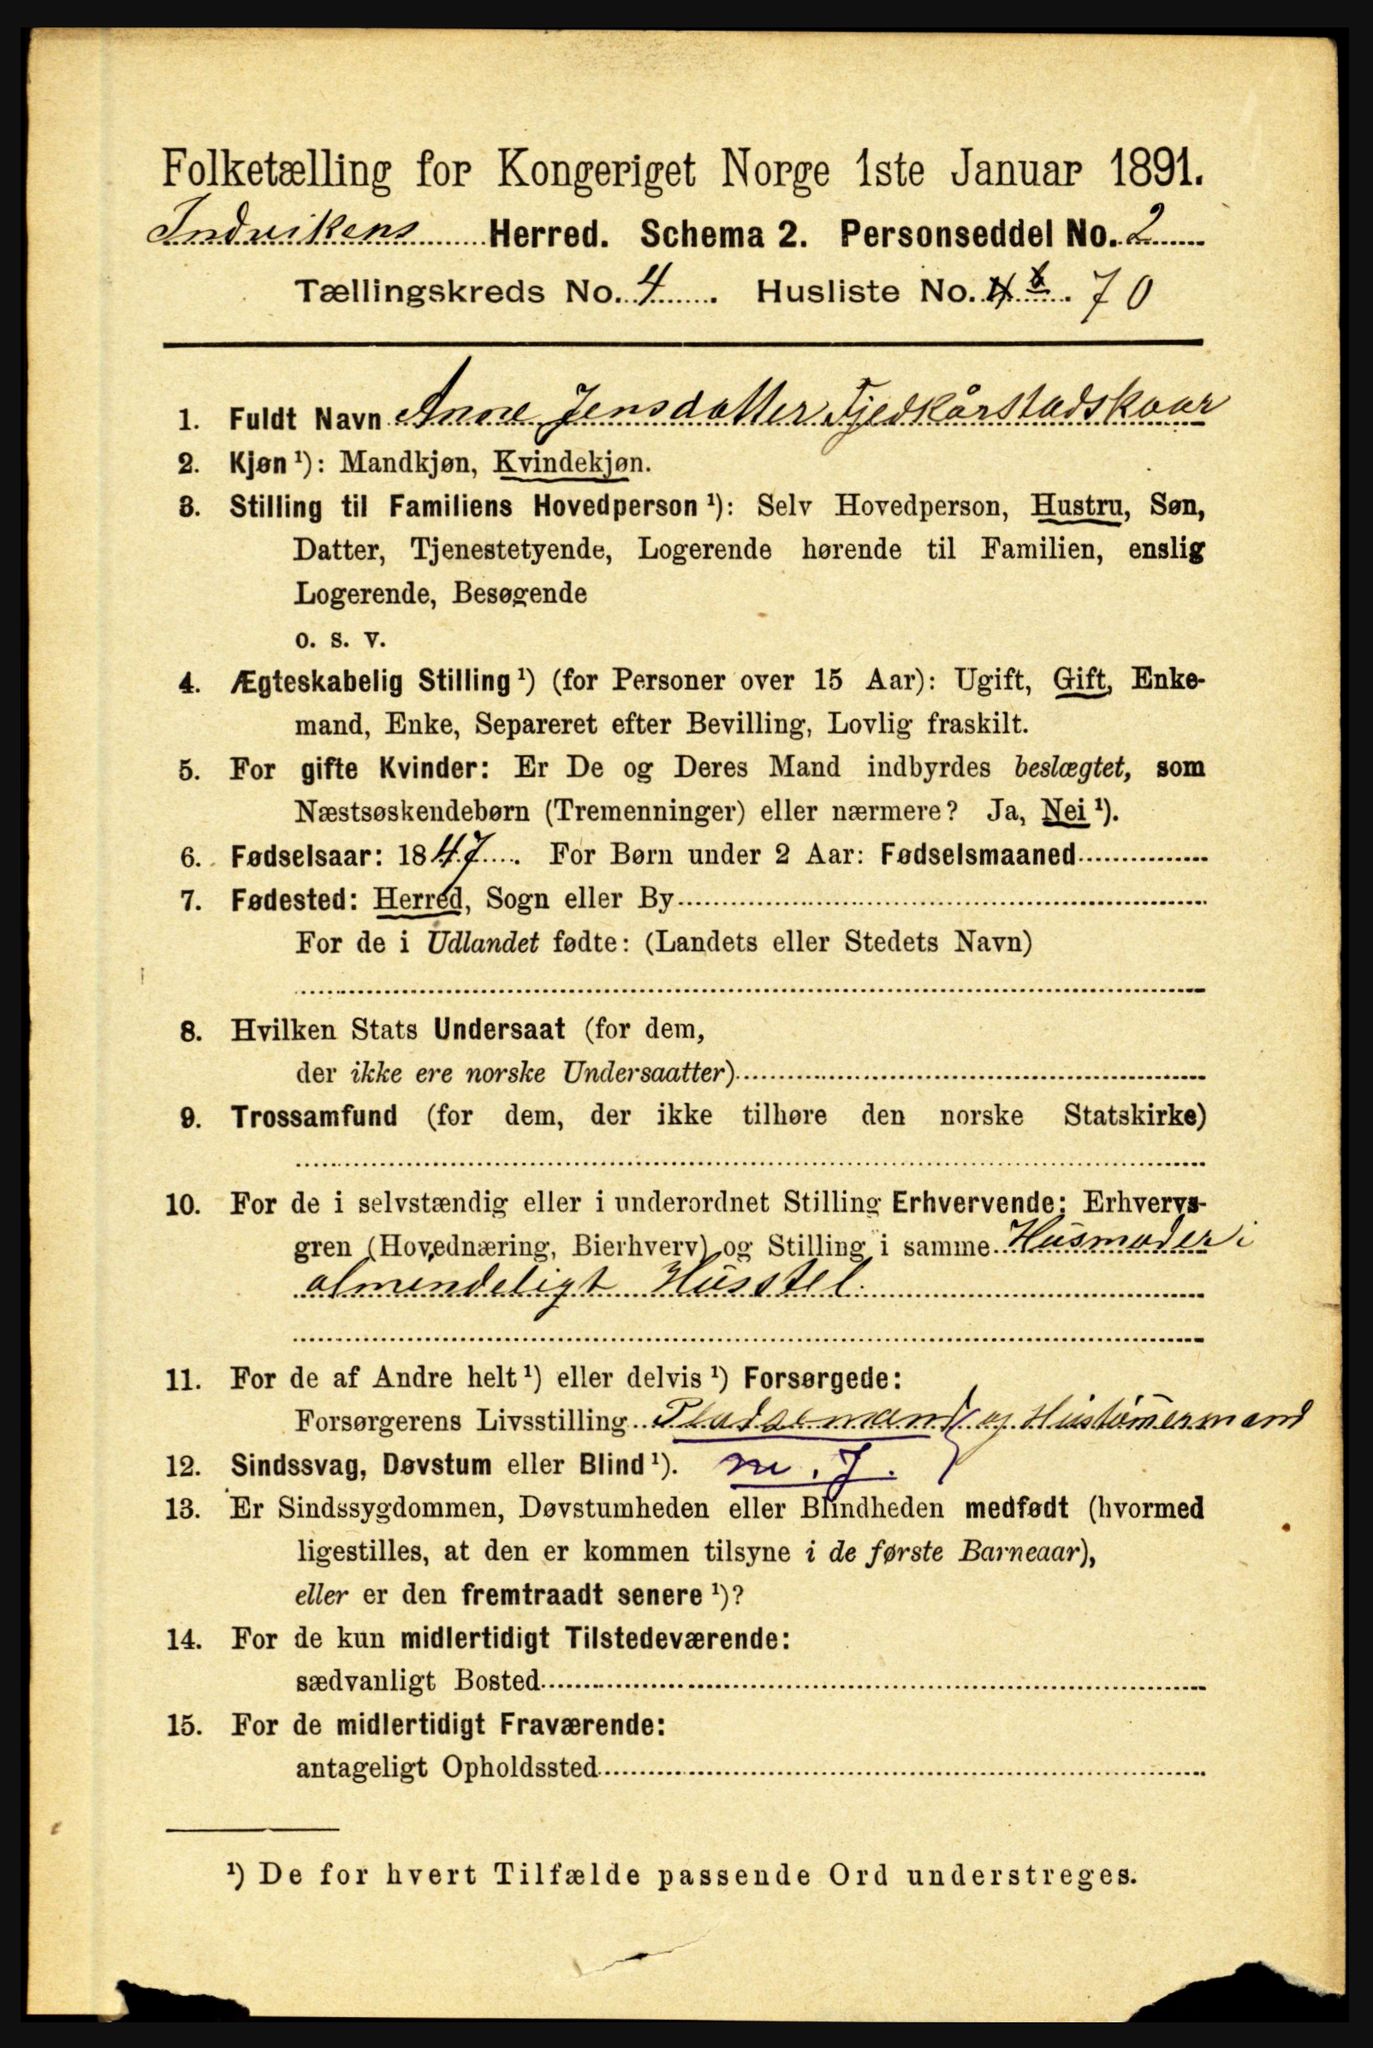 Folketælling for Kongeriget Norge 1ste Januar 1891.
Indvikens Herred. Schema 2. Personseddel No. 2
Tællingskreds No. 4. Husliste No. 70
1. Fuldt Navn Anne Jensdatter Tjedkårstadskaar
2. Kjøn ¹): Mandkjøn, Kvindekjøn.
3. Stilling til Familiens Hovedperson ¹): Selv Hovedperson, Hustru, Søn,
Datter, Tjenestetyende, Logerende hørende til Familien, enslig
Logerende, Besøgende
o. s. v.
4. Ægteskabelig Stilling ¹) (for Personer over 15 Aar): Ugift, Gift, Enke-
mand, Enke, Separeret efter Bevilling, Lovlig fraskilt.
5. For gifte Kvinder: Er De og Deres Mand indbyrdes beslægtet, som
Næstsøskendebørn (Tremenninger) eller nærmere? Ja, Nei ¹).
6. Fødselsaar: 1847. For Børn under 2 Aar: Fødselsmaaned
7. Fødested: Herred, Sogn eller By
For de i Udlandet fødte: (Landets eller Stedets Navn)
8. Hvilken Stats Undersaat (for dem,
der ikke ere norske Undersaatter)
9. Trossamfund (for dem, der ikke tilhøre den norske Statskirke)
10. For de i selvstændig eller i underordnet Stilling Erhvervende: Erhvervs-
gren (Hovednæring, Bierhverv) og Stilling i samme Husmoder i
almendeligt Husstel
11. For de af Andre helt ¹) eller delvis ¹) Forsørgede:
Forsørgerens Livsstilling Pladsemand og Hustømermand
12. Sindssvag, Døvstum eller Blind ¹). m. J.
13. Er Sindssygdommen, Døvstumheden eller Blindheden medfødt (hvormed
ligestilles, at den er kommen tilsyne i de første Barneaar),
eller er den fremtraadt senere ¹)?
14. For de kun midlertidigt Tilstedeværende:
sædvanligt Bosted
15. For de midlertidigt Fraværende:
antageligt Opholdssted
¹) De for hvert Tilfælde passende Ord understreges.